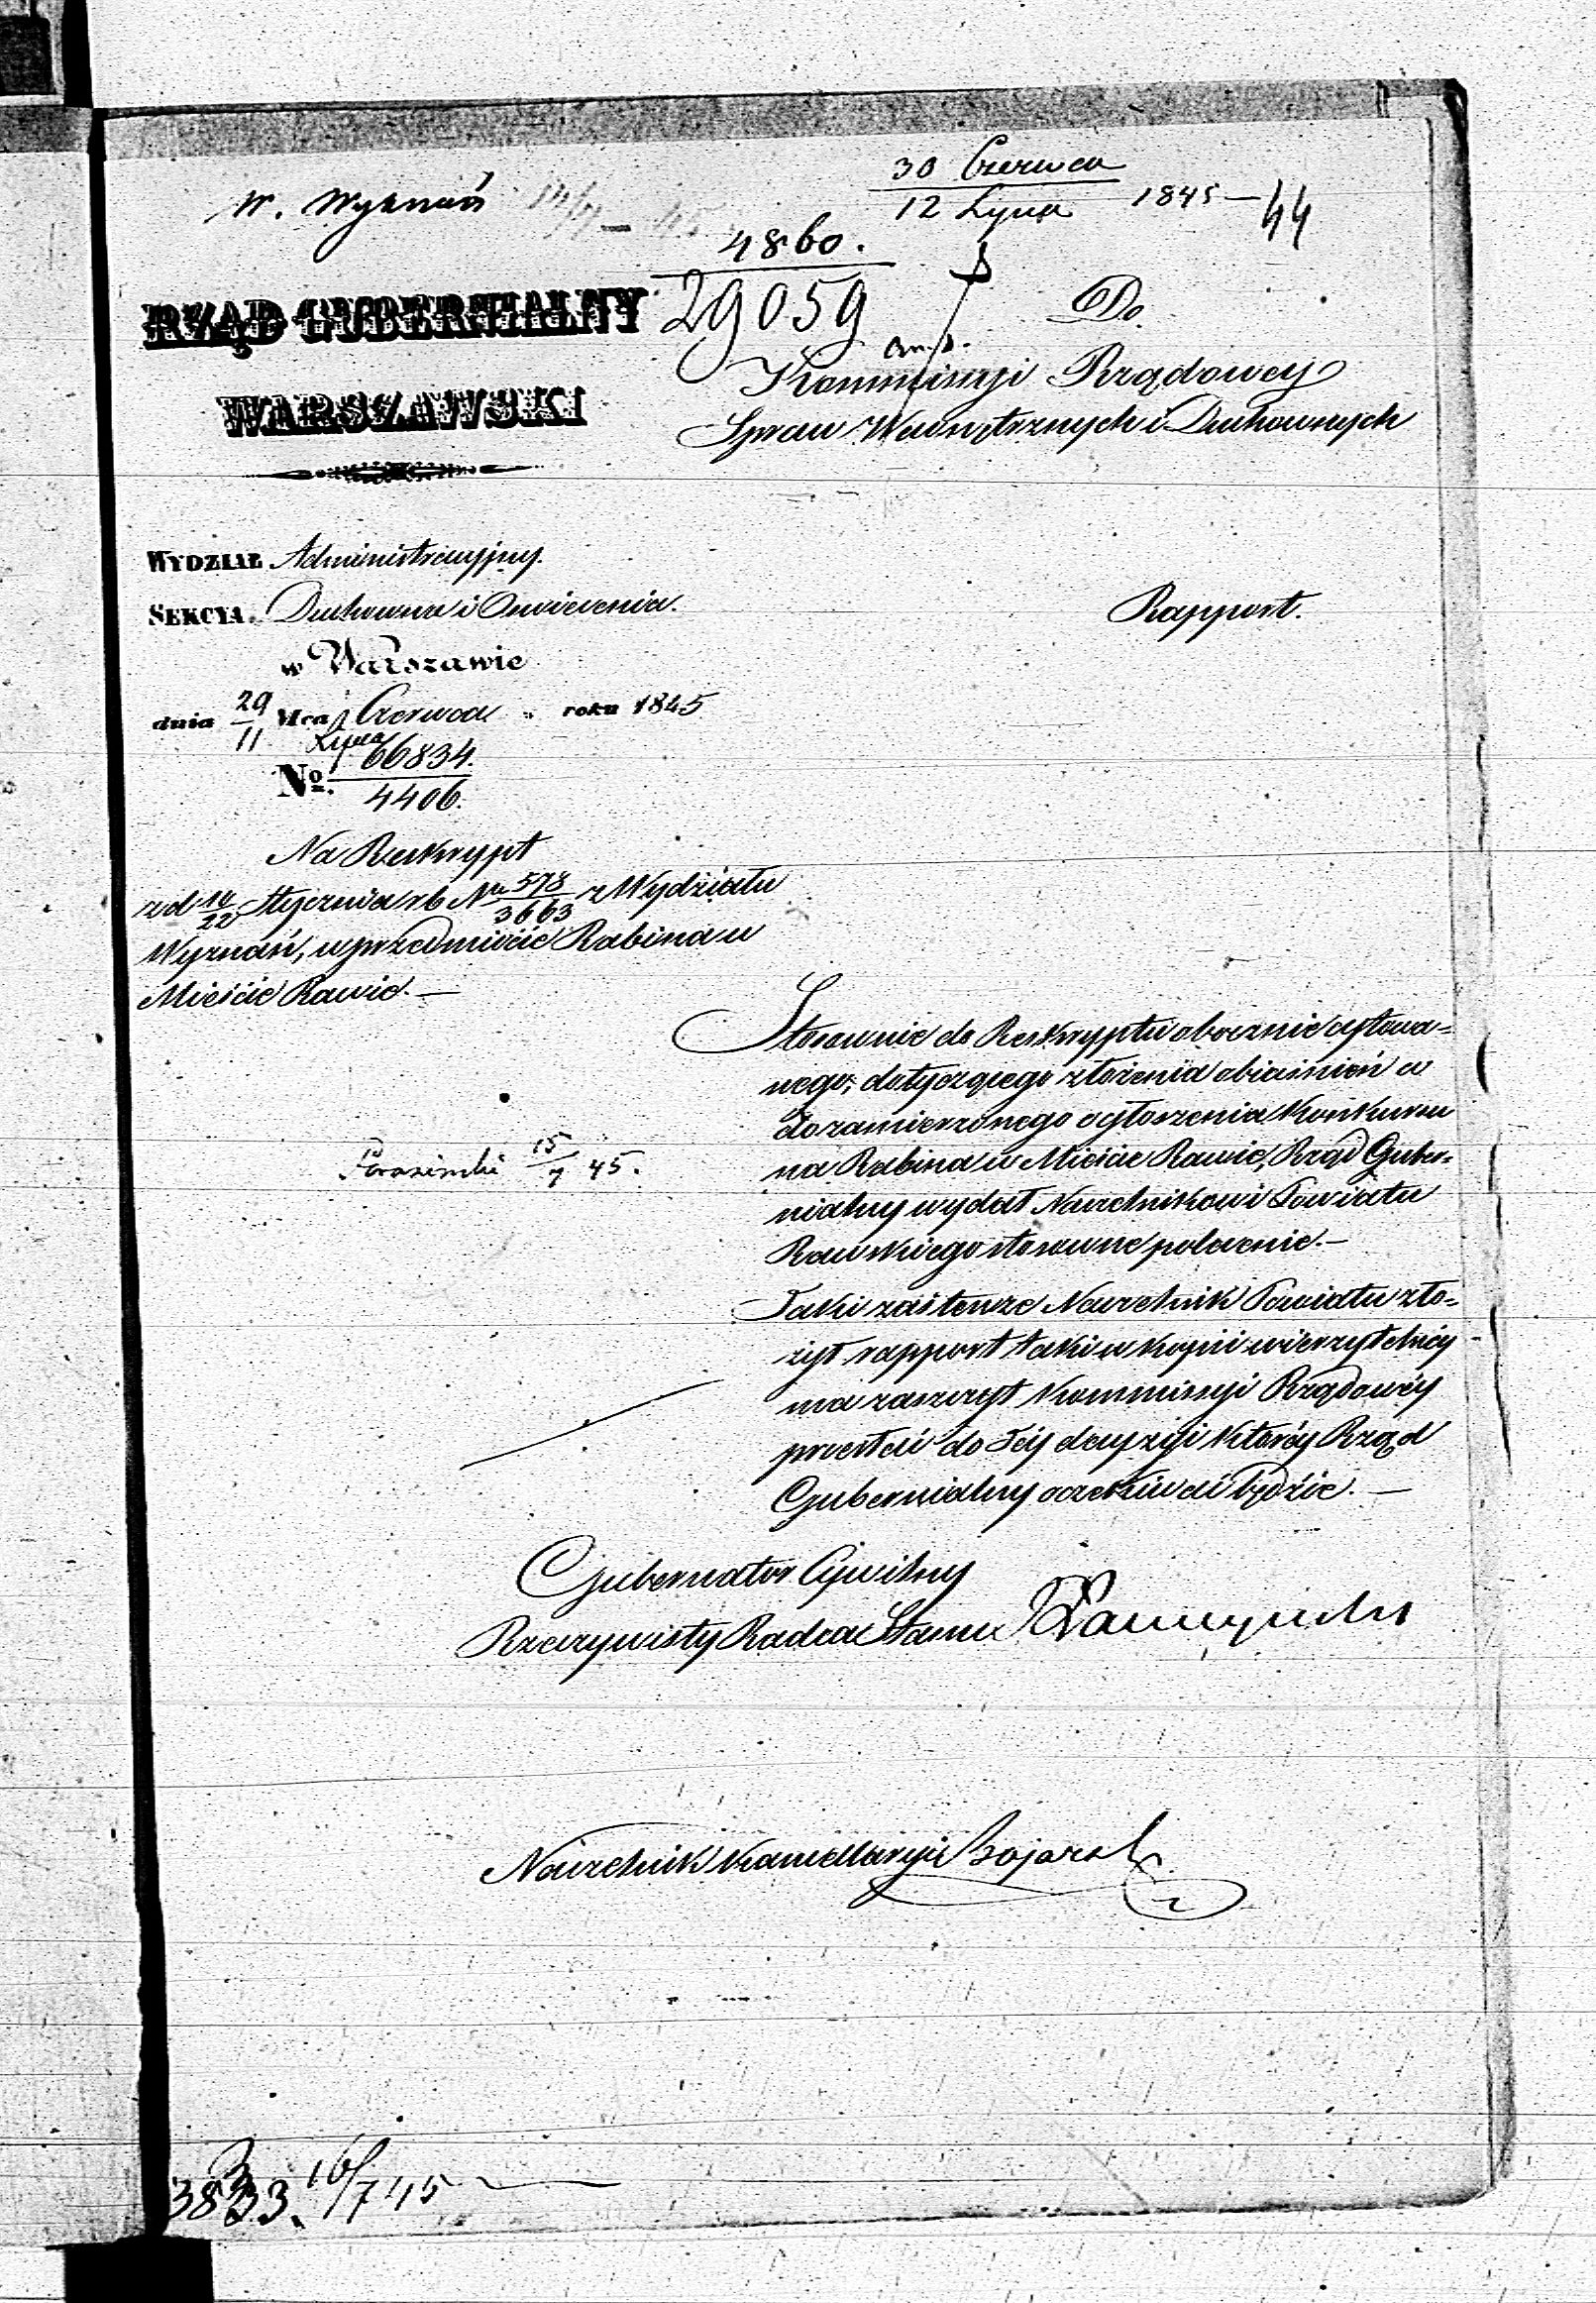 W. Wyznań
30 Czerwca
12 Lipca 1845 — 44
4860.
29059
RZĄD GUBERNIALNY
WARSZAWSKI
Do
Kommissyi Rządowey
Spraw Wewnętrznych i Duchownych
WYDZIAŁ Administracyjny.
SEKCYA. Duchowna i Oświecenia.
Rapport.
w Warszawie
dnia 29 Mca Czerwca roku 1845
11 Lipca
No. 66834.
4406.
Na Reskrypt
z d 10/22 Stycznia r b No 578/3663 z Wydziału
Wyznań, w przedmiocie Rabina w
Mieście Rawie. —
Stosownie do Reskryptu obocznie cytowa=
nego, dotyczącego złożenia obiaśnień w
do zamierzonego ogłoszenia Konkursu
na Rabina w Mieście Rawie, Rząd Guber=
nialny wydał Naczelnikowi Powiatu
Rawskiego stosowne polecenie. —
Jaki zaś tenże Naczelnik Powiatu zło=
żył rapport taki w kopii wierzytelnéy
ma zaszczyt Kommissyi Rządowéy
przesłać do Jéy decyzyi któréy Rząd
Gubernialny oczekiwać będzie. —
15/7 45.
Gubernator Cywilny
Rzeczywisty Radca Stanu
Naczelnik Kancellaryi
3833. 16/7 45